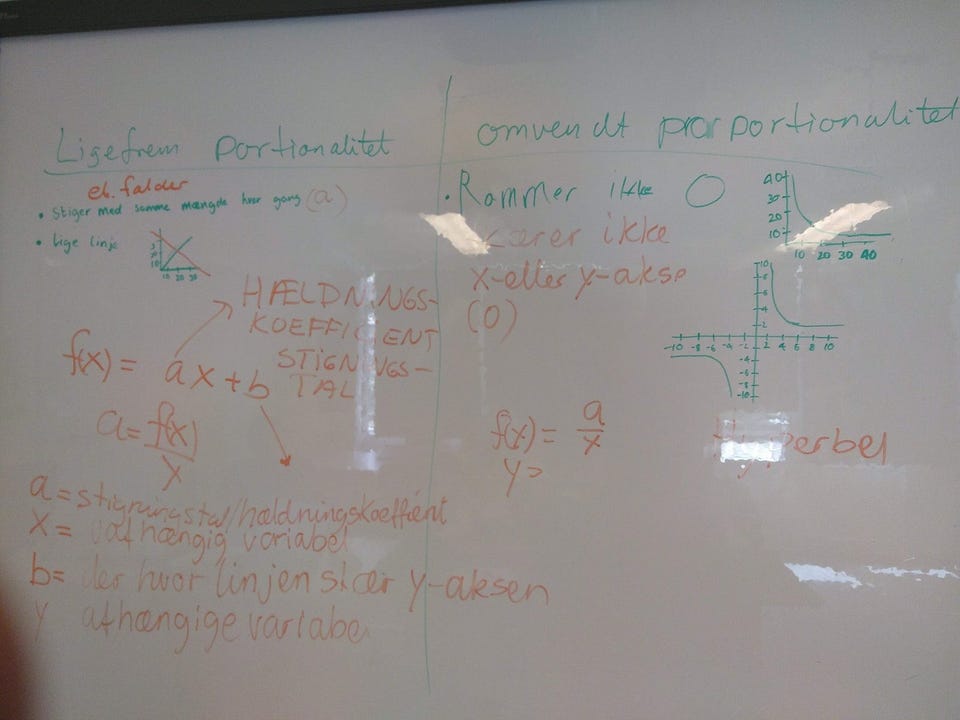 Ligefrem portionalitet
el. falder
• Stiger med samme mængde hver gang (a)
• Lige linje
10 20 30
HÆLDNINGS-
KOEFFICIENT
STIGNINGS-
TAL
f(x) = ax+b
a = f(x)
x
a = stigningstal/hældningskoeffient
X = uafhængig variabel
b = der hvor linjen skær y-aksen
y afhængige variabel
omvendt proportionalitet
• Rammer ikke 0
skærer ikke
x-eller y-akse
(0)
40
30
20
10
10 20 30 40
10
8
6
4
2
-10 -8 -6 -4 -2 2 4 6 8 10
-2
-4
-6
-8
-10
f(x) = a
x
y=
Hyperbel